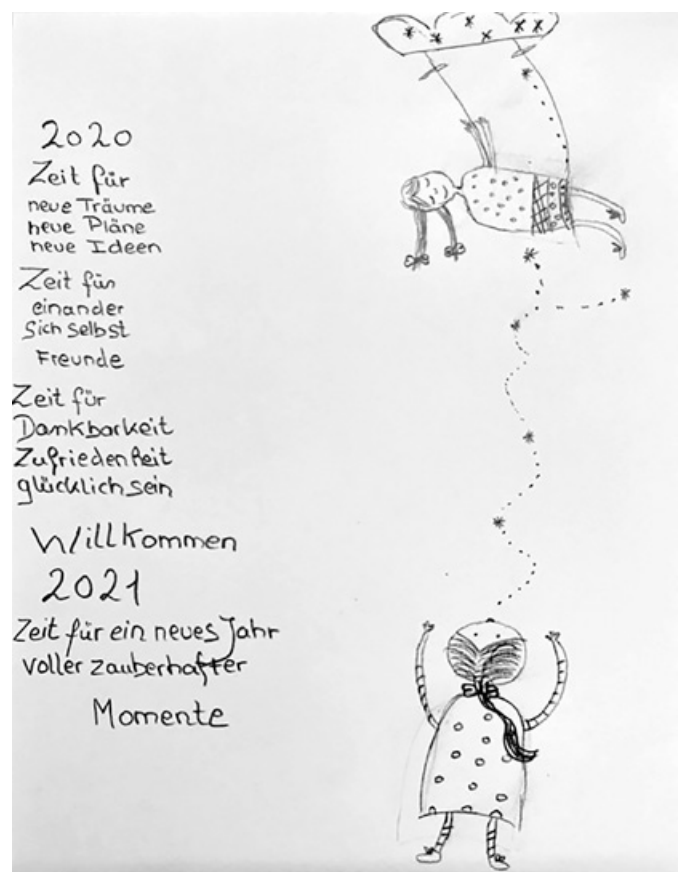 2020
Zeit für
neue Träume
neue Pläne
neue Ideen
Zeit für
einander
Sich selbst
Freunde
Zeit für
Dankbarkeit
Zufriedenheit
glücklich sein
Willkommen
2021
Zeit für ein neues Jahr
voller zauberhafter
Momente